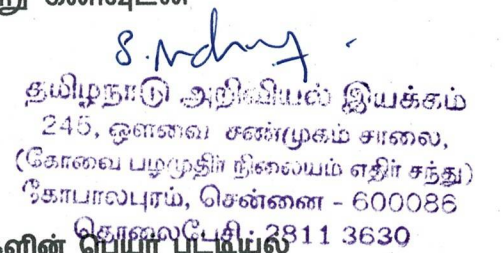 S.
தமிழ்நாடு அறிவியல் இயக்கம்
245, ஔவை சண்முகம் சாலை,
(கோவை பழமுதிர் நிலையம் எதிர் சந்து)
கோபாலபுரம், சென்னை - 600086
தொலைபேசி : 2811 3630
பெயர் பட்டியல்